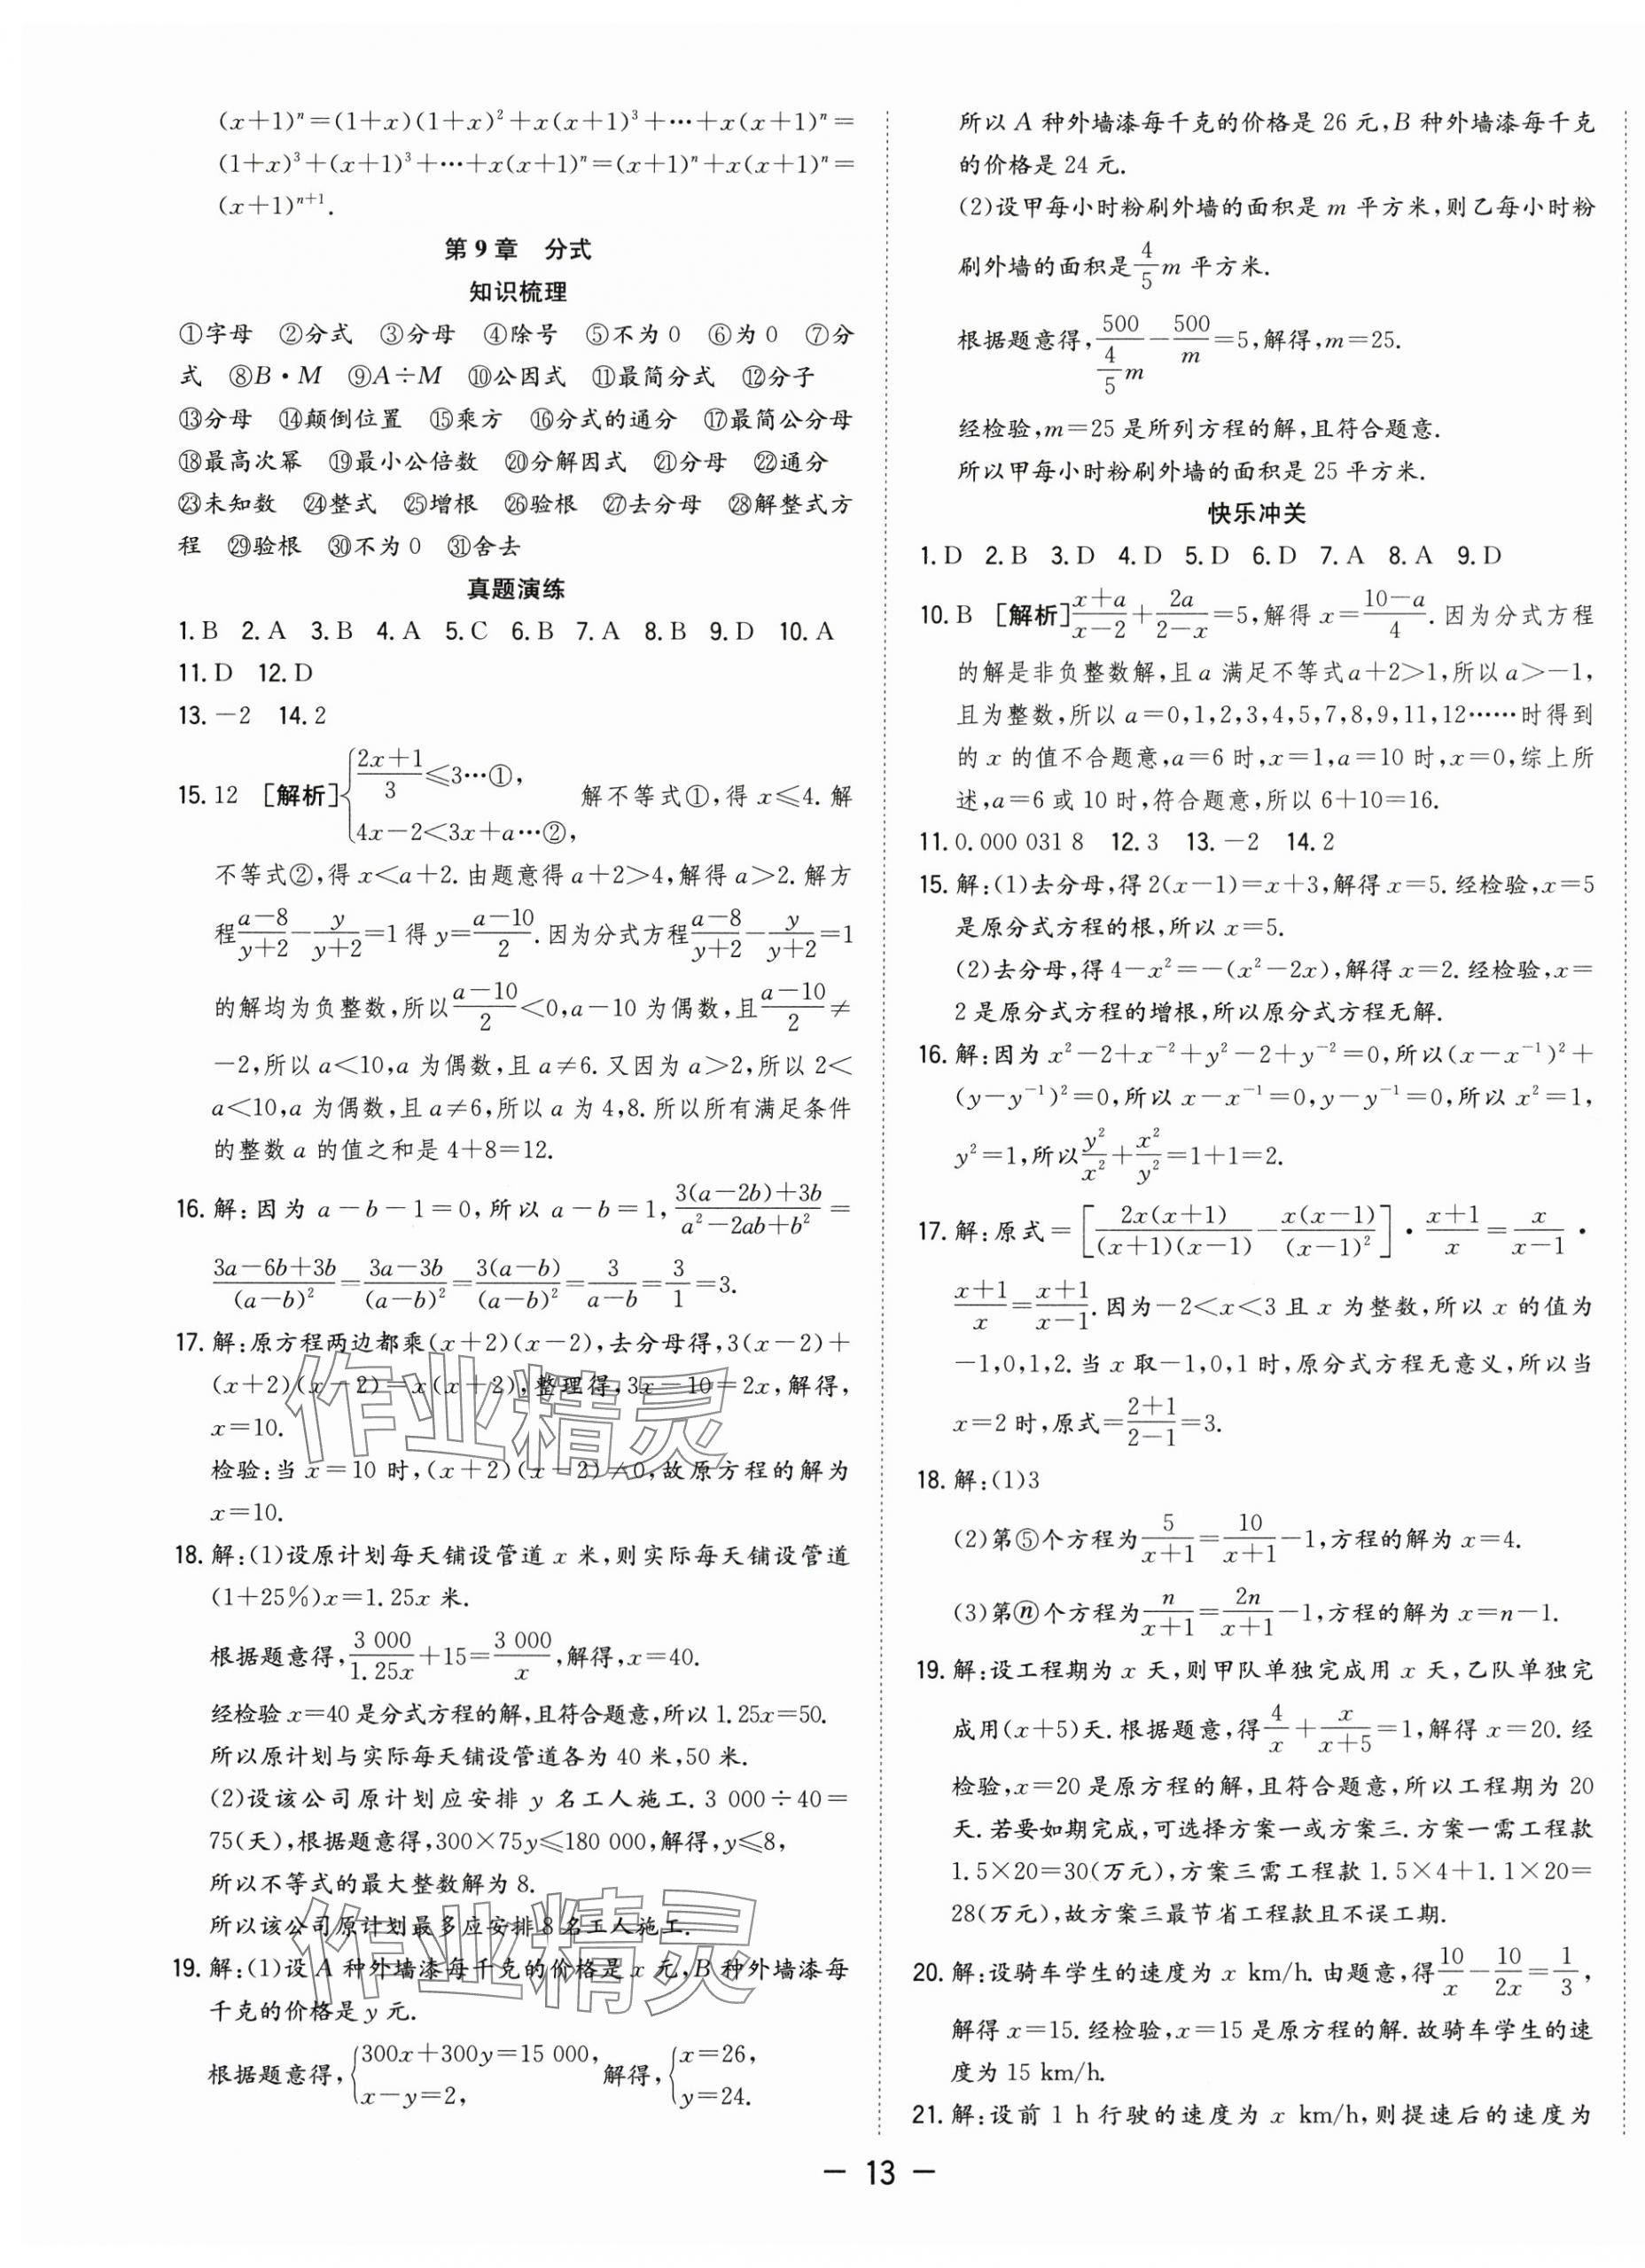 (x+1)ⁿ=(1+x)(1+x)²+x(x+1)³+⋯+x(x+1)ⁿ=
(1+x)³+(x+1)³+⋯+x(x+1)ⁿ=(x+1)ⁿ+x(x+1)ⁿ=
(x+1)ⁿ⁺¹.
第9章 分式
知识梳理
①字母 ②分式 ③分母 ④除号 ⑤不为0 ⑥为0 ⑦分
式 ⑧B·M ⑨A÷M ⑩公因式 ⑪最简分式 ⑫分子
⑬分母 ⑭颠倒位置 ⑮乘方 ⑯分式的通分 ⑰最简公分母
⑱最高次幂 ⑲最小公倍数 ⑳分解因式 ㉑分母 ㉒通分
㉓未知数 ㉔整式 ㉕增根 ㉖验根 ㉗去分母 ㉘解整式方
程 ㉙验根 ㉚不为0 ㉛舍去
真题演练
1.B 2.A 3.B 4.A 5.C 6.B 7.A 8.B 9.D 10.A
11.D 12.D
13.-2 14.2
15.12 [解析]{(2x+1)/3≤3⋯①, 4x-2<3x+a⋯②, 解不等式①,得x≤4.解
不等式②,得x<a+2.由题意得a+2>4,解得a>2.解方
程(a-8)/(y+2)-y/(y+2)=1得y=(a-10)/2.因为分式方程(a-8)/(y+2)-y/(y+2)=1
的解均为负整数,所以(a-10)/2<0,a-10为偶数,且(a-10)/2≠
-2,所以a<10,a为偶数,且a≠6.又因为a>2,所以2<
a<10,a为偶数,且a≠6,所以a为4,8.所以所有满足条件
的整数a的值之和是4+8=12.
16.解:因为a-b-1=0,所以a-b=1,(3(a-2b)+3b)/(a²-2ab+b²)=
(3a-6b+3b)/(a-b)²=(3a-3b)/(a-b)²=3(a-b)/(a-b)²=3/(a-b)=3/1=3.
17.解:原方程两边都乘(x+2)(x-2),去分母得,3(x-2)+
(x+2)(x-2)=x(x+2),整理得,3x-10=2x,解得,
x=10.
检验:当x=10时,(x+2)(x-2)≠0,故原方程的解为
x=10.
18.解:(1)设原计划每天铺设管道x米,则实际每天铺设管道
(1+25%)x=1.25x米.
根据题意得,3 000/1.25x+15=3 000/x,解得,x=40.
经检验x=40是分式方程的解,且符合题意,所以1.25x=50.
所以原计划与实际每天铺设管道各为40米,50米.
(2)设该公司原计划应安排y名工人施工.3 000÷40=
75(天),根据题意得,300×75y≤180 000,解得,y≤8,
所以不等式的最大整数解为8.
所以该公司原计划最多应安排8名工人施工.
19.解:(1)设A种外墙漆每千克的价格是x元,B种外墙漆每
千克的价格是y元.
根据题意得,{300x+300y=15 000, x-y=2, 解得,{x=26, y=24.
所以A种外墙漆每千克的价格是26元,B种外墙漆每千克
的价格是24元.
(2)设甲每小时粉刷外墙的面积是m平方米,则乙每小时粉
刷外墙的面积是4/5 m平方米.
根据题意得,500/(4/5 m)-500/m=5,解得,m=25.
经检验,m=25是所列方程的解,且符合题意.
所以甲每小时粉刷外墙的面积是25平方米.
快乐冲关
1.D 2.B 3.D 4.D 5.D 6.D 7.A 8.A 9.D
10.B [解析](x+a)/(x-2)+2a/(2-x)=5,解得x=(10-a)/4.因为分式方程
的解是非负整数解,且a满足不等式a+2>1,所以a>-1,
且为整数,所以a=0,1,2,3,4,5,7,8,9,11,12……时得到
的x的值不合题意,a=6时,x=1,a=10时,x=0,综上所
述,a=6或10时,符合题意,所以6+10=16.
11.0.000 031 8 12.3 13.-2 14.2
15.解:(1)去分母,得2(x-1)=x+3,解得x=5.经检验,x=5
是原分式方程的根,所以x=5.
(2)去分母,得4-x²=-(x²-2x),解得x=2.经检验,x=
2是原分式方程的增根,所以原分式方程无解.
16.解:因为x²-2+x⁻²+y²-2+y⁻²=0,所以(x-x⁻¹)²+
(y-y⁻¹)²=0,所以x-x⁻¹=0,y-y⁻¹=0,所以x²=1,
y²=1,所以y²/x²+x²/y²=1+1=2.
17.解:原式=[2x(x+1)/(x+1)(x-1)-x(x-1)/(x-1)²]·(x+1)/x=x/(x-1)·
(x+1)/x=(x+1)/(x-1).因为-2<x<3且x为整数,所以x的值为
-1,0,1,2.当x取-1,0,1时,原分式方程无意义,所以当
x=2时,原式=(2+1)/(2-1)=3.
18.解:(1)3
(2)第⑤个方程为5/(x+1)=10/(x+1)-1,方程的解为x=4.
(3)第ⓝ个方程为n/(x+1)=2n/(x+1)-1,方程的解为x=n-1.
19.解:设工程期为x天,则甲队单独完成用x天,乙队单独完
成用(x+5)天.根据题意,得4/x+x/(x+5)=1,解得x=20.经
检验,x=20是原方程的解,且符合题意,所以工程期为20
天.若要如期完成,可选择方案一或方案三.方案一需工程款
1.5×20=30(万元),方案三需工程款1.5×4+1.1×20=
28(万元),故方案三最节省工程款且不误工期.
20.解:设骑车学生的速度为x km/h.由题意,得10/x-10/2x=1/3,
解得x=15.经检验,x=15是原方程的解.故骑车学生的速
度为15 km/h.
21.解:设前1 h行驶的速度为x km/h,则提速后的速度为
— 13 —
作业精灵
作业精灵